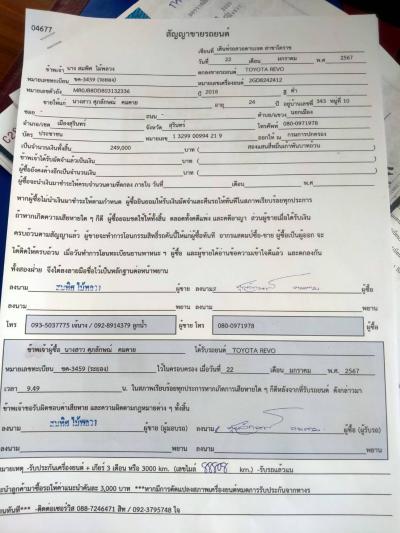 04677
สัญญาขายรถยนต์
เขียนที่ เต็นท์รถสวยตาแจด สาขาโคราช
วันที่ 22 เดือน มกราคม พ.ศ 2567
ข้าพเจ้า นาง สมพิศ ไม้พลวง ตกลงขายรถยนต์ TOYOTA REVO
หมายเลขทะเบียน ขค-3459 (ระยอง) หมายเลขเครื่องยนต์ 2GD8242412
หมายเลขตัวถัง MR0JB8DD803132336 ปี 2016 สี ดำ
ขายให้แก่ นางสาว ศุภลักษณ์ คมคาย อายุ 24 ปี อยู่บ้านเลขที่ 343 หมู่ที่ 10
ซอย - ถนน - ตำบล/แขวง นอกเมือง
อำเภอ/เขต เมืองสุรินทร์ จังหวัด สุรินทร์ โทรศัพท์ 080-0971978
บัตร ประชาชน หมายเลข 1 3299 00994 21 9 ออกให้ ณ กรมการปกครอง
เป็นจำนวนเงินทั้งสิ้น 249,000 บาท ( สองแสนสี่หมื่นเก้าพันบาทถ้วน )
ข้าพเจ้าได้รับมัดจำแล้วเป็นเงิน บาท ( )
ผู้ซื้อยังคงค้างอีกเป็นจำนวนเงิน บาท ( )
ผู้ซื้อจะนำเงินมาชำระให้ครบจำนวนตามที่ตกลง ภายใน วันที่ เดือน พ.ศ
หากผู้ซื้อไม่นำเงินมาชำระให้ตามกำหนด ผู้ซื้อยินยอมให้ริบเงินมัดจำและคืนรถให้ทันทีในสภาพเรียบร้อยทุกประการ
ถ้าหากเกิดความเสียหายใด ๆ ก็ดี ผู้ซื้อยอมชดใช้ให้ทั้งสิ้น ตลอดทั้งคดีแพ่ง และคดีอาญา ส่วนผู้ขายเมื่อได้รับเงิน
ครบถ้วนตามสัญญาแล้ว ผู้ขายจะทำการโอนกรรมสิทธิ์รถคันนี้ให้แก่ผู้ซื้อทันที อากรแสตมป์ซื้อ-ขาย ผู้ซื้อเป็นผู้ออก จะ
ได้ติดให้ครบถ้วน เมื่อวันที่ทำการโอนทะเบียนยานพาหนะ ฯ ผู้ซื้อ และผู้ขายได้อ่านข้อความเข้าใจดีแล้ว และตกลงกัน
ทั้งสองฝ่าย จึงได้ลงลายมือชื่อไว้เป็นหลักฐานต่อหน้าพยาน
ลงนาม สมพิศ ไม้พลวง ผู้ขาย ลงนาม ผู้ซื้อ
ลงนาม พยาน ลงนาม พยาน
โทร 093-5037775 / 092-8914379 ลูกน้ำ ผู้ขาย โทร 080-0971978 ผู้ซื้อ
ข้าพเจ้าผู้ซื้อ นางสาว ศุภลักษณ์ คมคาย ได้รับรถยนต์ TOYOTA REVO
หมายเลขทะเบียน ขค-3459 (ระยอง) ไว้ในครอบครอง เมื่อวันที่ 22 เดือน มกราคม พ.ศ 2567
เวลา 9.49 น. ในสภาพเรียบร้อยทุกประการหากเกิดการเสียหายใด ๆ ก็ดีหลังจากที่รับรถยนต์ ดังกล่าวมา
ข้าพเจ้าขอรับผิดชอบค่าเสียหาย และความผิดตามกฎหมายต่าง ๆ ทั้งสิ้น
ลงนาม สมพิศ ไม้พลวง ผู้ขาย (ผู้มอบรถ) ลงนาม ผู้ซื้อ (ผู้รับรถ)
ลงนาม พยาน ลงนาม พยาน
ายเหตุ -รับประกันเครื่องยนต์ + เกียร์ 3 เดือน หรือ 3000 km. (เลขไมล์ km.) -รับรถแล้ว
ะนำลูกค้ามาซื้อรถให้ค่าแนะนำคันละ 3,000 บาท ***หากมีการดัดแปลงสภาพเครื่องยนต์หมดการรับประกันจากทางร
-ติดต่อเซอร์วิส 088-7246471 สิท / 092-3795748 ใจ